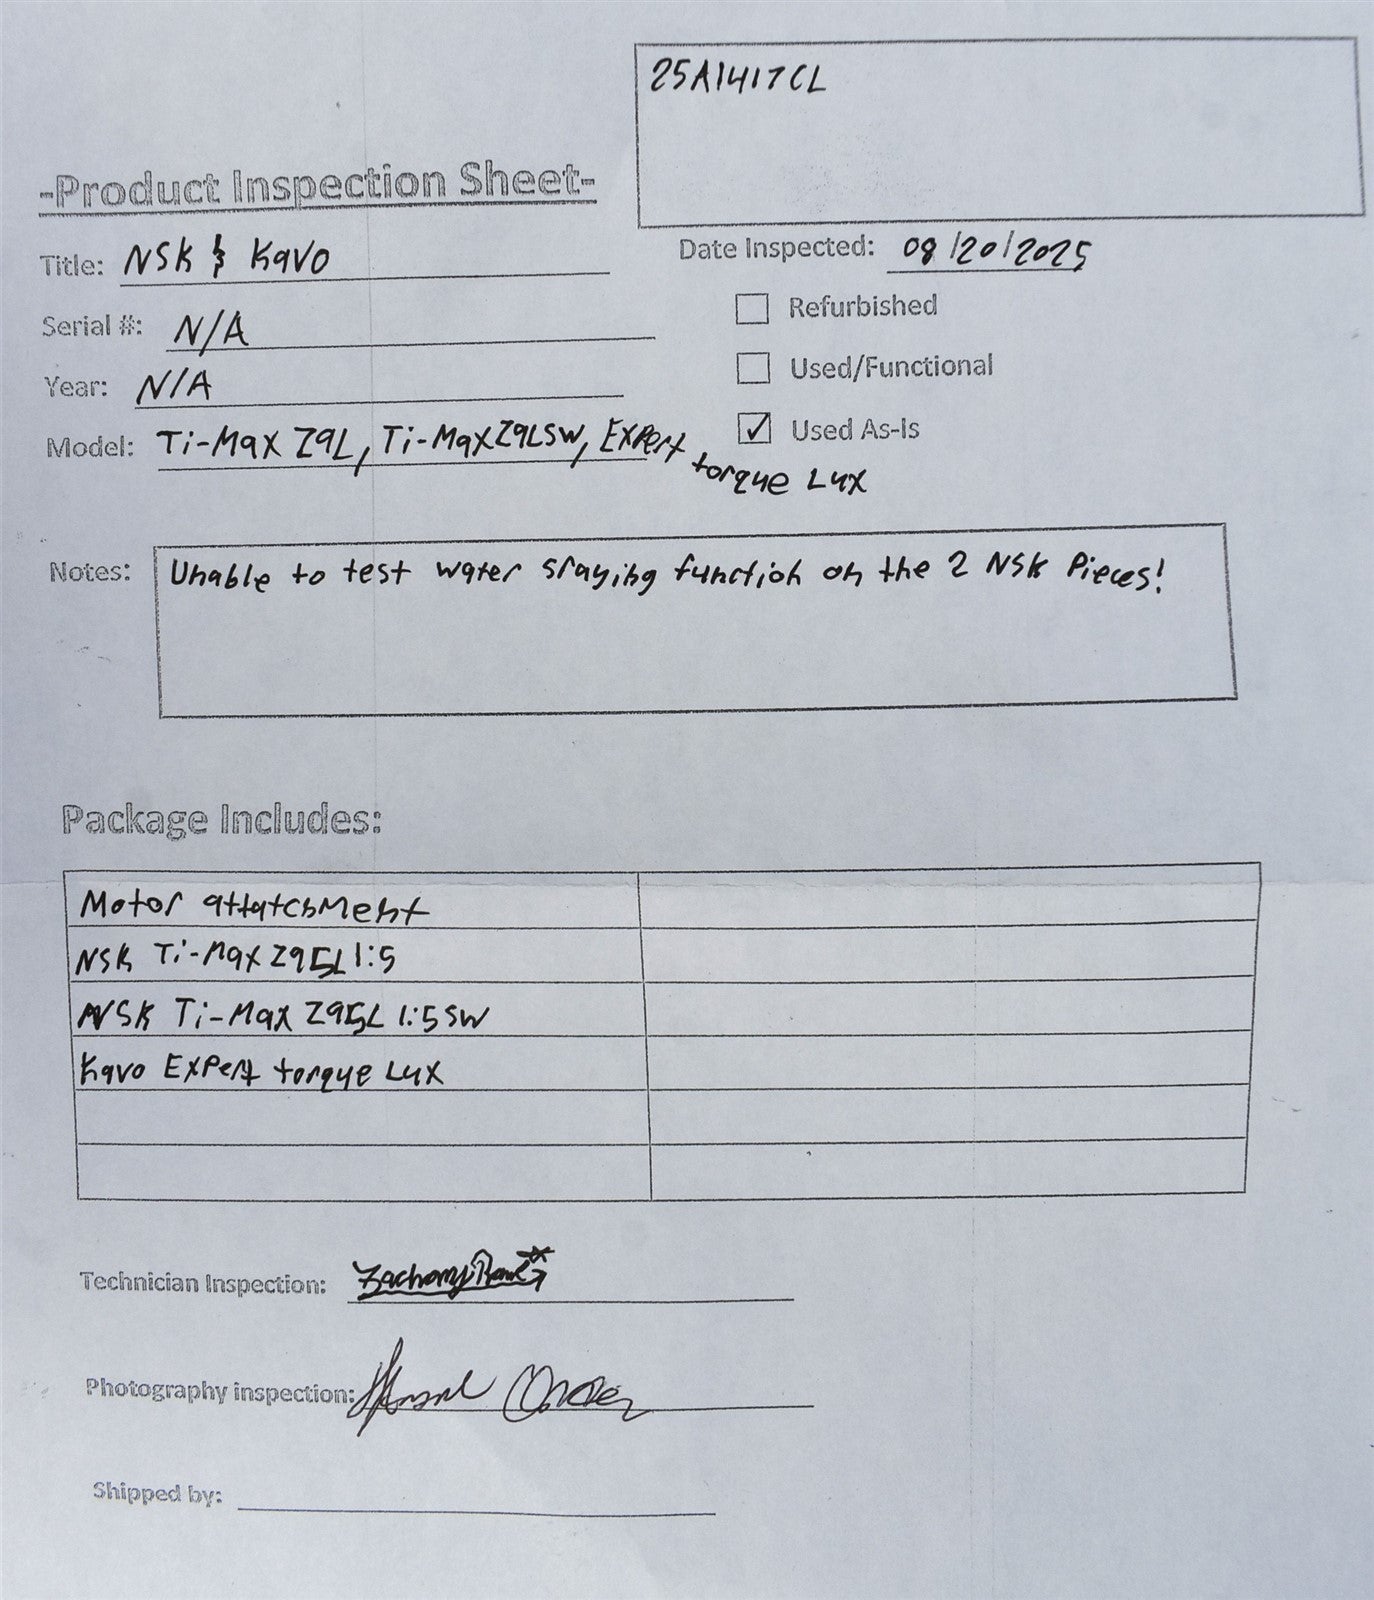 25A1417CL
-Product Inspection Sheet-
Title: NSK & Kavo
Date Inspected: 08/20/2025
Serial #: N/A
Refurbished
Year: N/A
Used/Functional
Model: Ti-Max Z9L, Ti-Max Z9LSW, Expert torque Lux
Used As-Is
Notes: Unable to test water sraying function on the 2 NSK Pieces!
Package Includes:
Motor attatchment
NSK Ti-Max Z95L 1:5
NSK Ti-Max Z95L 1:5 SW
Kavo Expert torque Lux
Technician Inspection:
Photography inspection:
Shipped by: